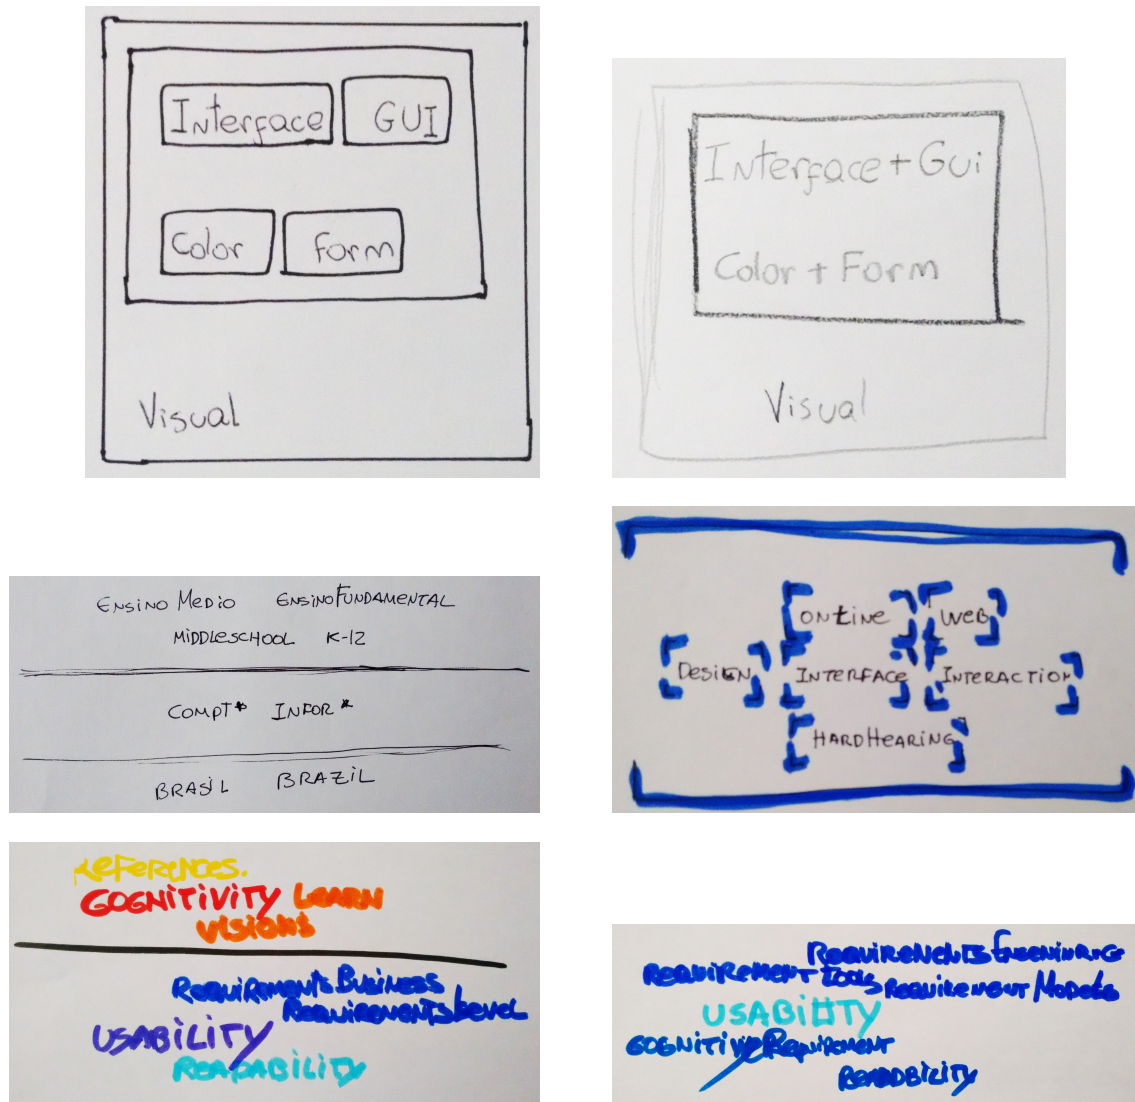 Interface GUI
Color Form
Visual
Interface + Gui
Color + Form
Visual
ENSINO MEDIO ENSINO FUNDAMENTAL
MIDDLESCHOOL K-12
COMPT* INFOR*
BRASIL BRAZIL
ONLINE WEB
DESIGN INTERFACE INTERACTION
HARDHEARING
REFERENCES.
COGNITIVITY LEARN
VISIONS
REQUIREMENTS BUSINESS
REQUIREMENTS LEVEL
USABILITY
READABILITY
REQUIREMENTS
REQUIREMENT TOOLS
REQUIREMENT MODELS
USABILITY
REQUIREMENT